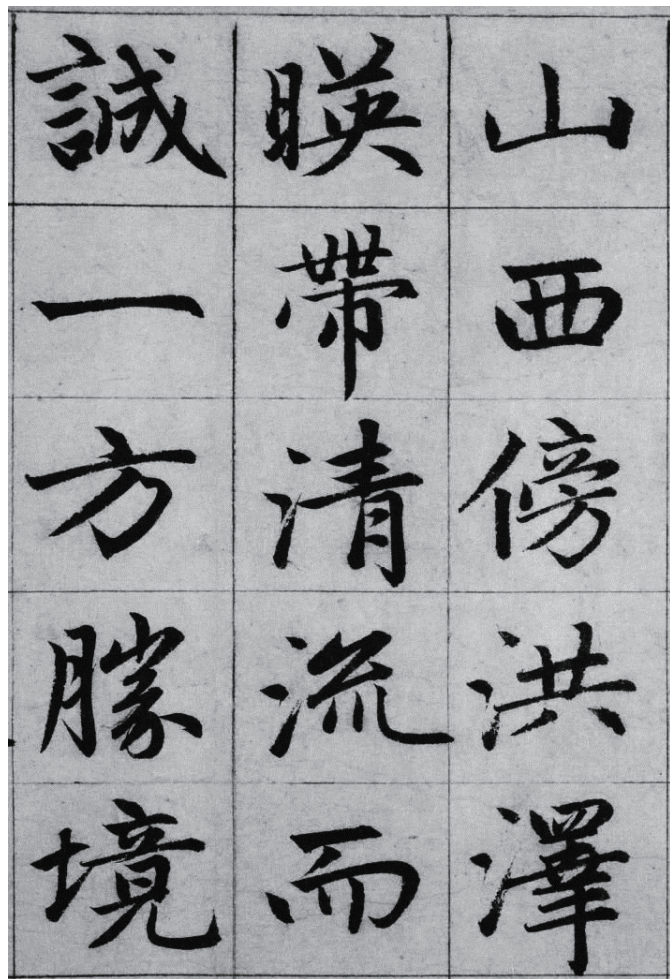 山西傍洪澤
暎帶清流而
誠一方勝境